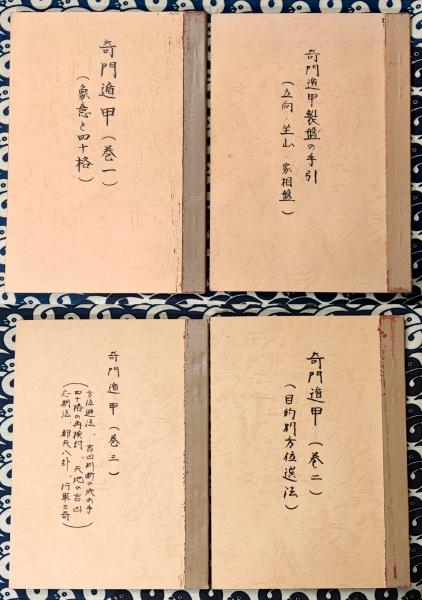 奇門遁甲（巻一）
（象意と四十格）
奇門遁甲製盤の手引
（立向・坐山・家相盤）
奇門遁甲（巻三）
方位選法、吉凶判断の決め手
四十格の再検討、天地の吉凶
応期法 納爻八卦 行軍三奇
奇門遁甲（巻二）
（目的別方位選法）